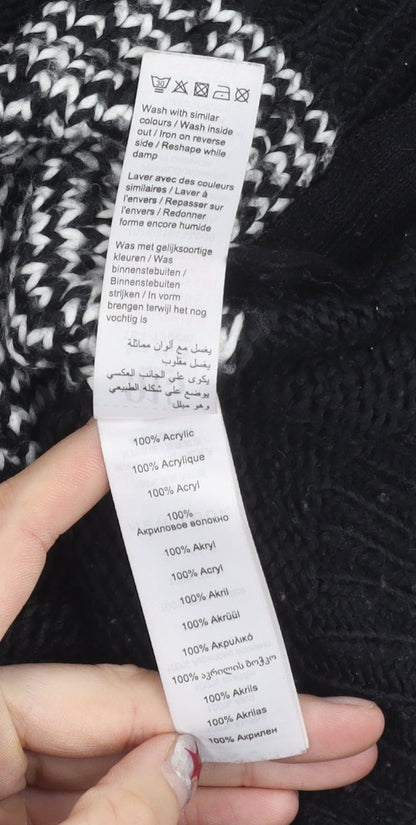 30
Wash with similar
colours / Wash inside
out / Iron on reverse
side / Reshape while
damp
Laver avec des couleurs
similaires / Laver à
l'envers / Repasser sur
l'envers / Redonner
forme encore humide
Was met gelijksoortige
kleuren / Was
binnenstebuiten /
Binnenstebuiten
strijken / In vorm
brengen terwijl het nog
vochtig is
يغسل مع ألوان مماثلة
يغسل مقلوب
يكوى على الجانب العكسي
يوضع على شكله الطبيعي
وهو مبلل
100% Acrylic
100% Acrylique
100% Acryl
100%
Акриловое волокно
100% Akryl
100% Acryl
100% Akril
100% Akrüül
100% Ακρυλικό
100% აკრილის ბოჭკო
100% Akrils
100% Akrilas
100% Акрилен